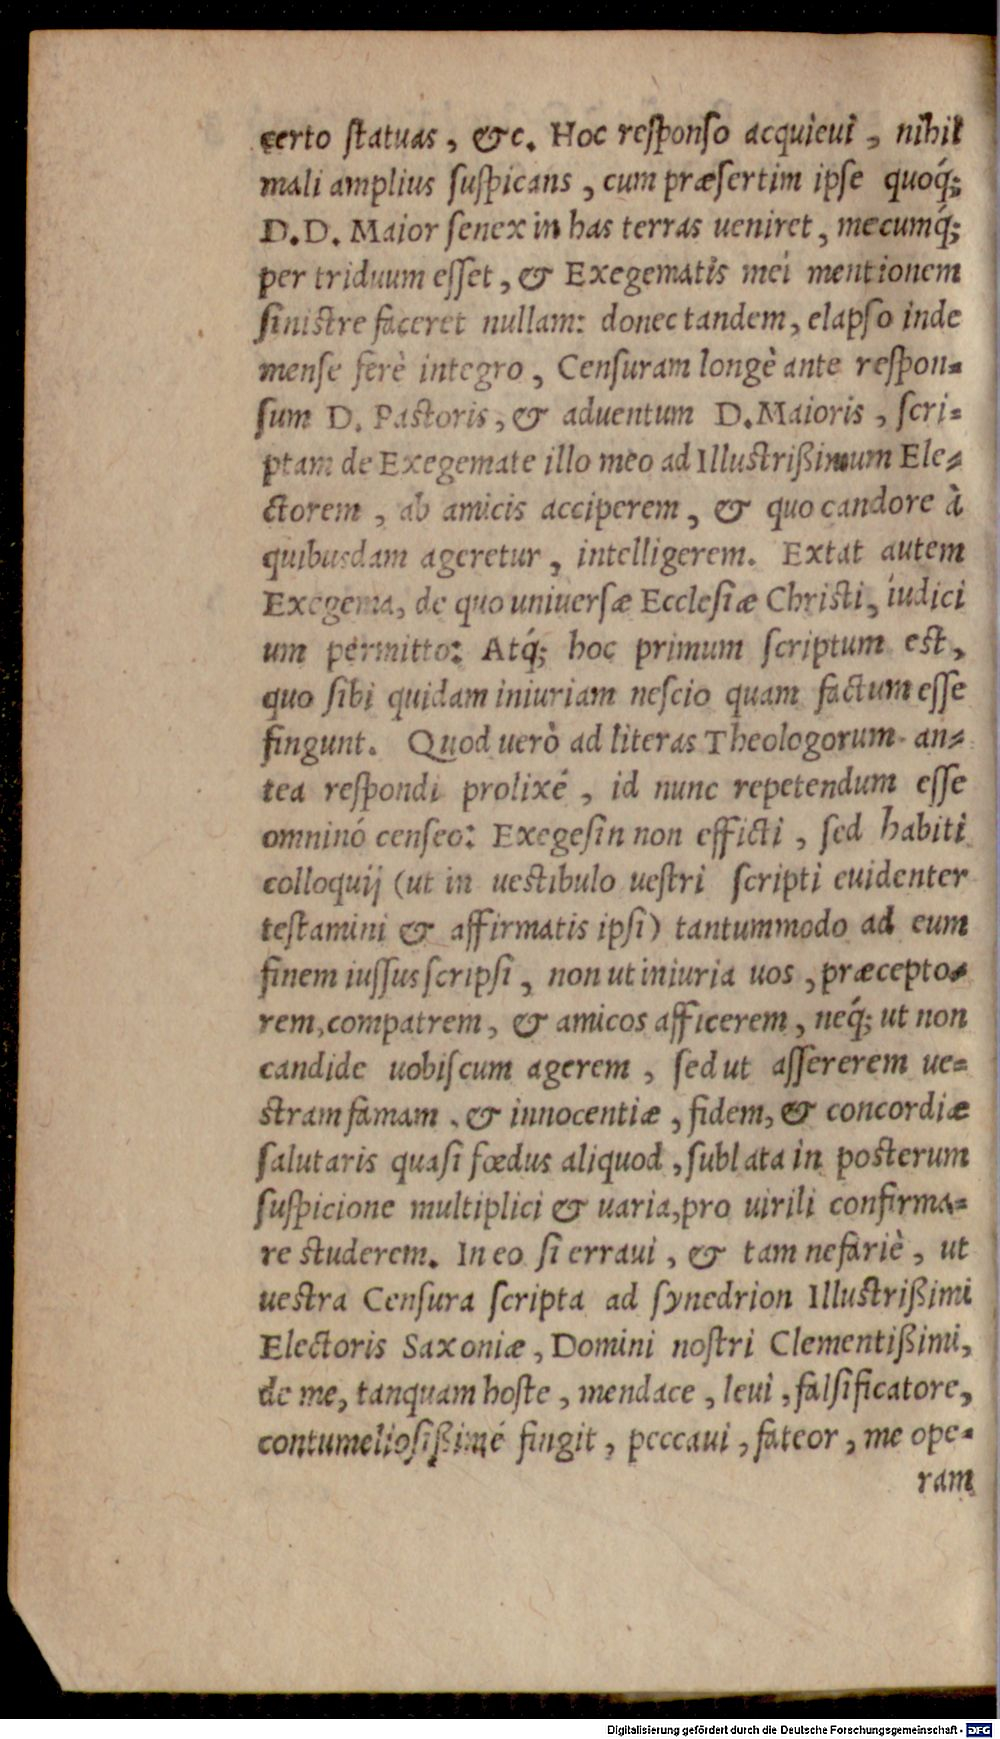 certo ſtatuas, &c. Hoc reſponſo acquieui, nihil
mali amplius ſuſpicans, cum præſertim ipſe quoq́;
D.D. Maior ſenex in has terras ueniret, mecumq́;
per triduum eſſet, & Exegematis mei mentionem
ſiniſtre faceret nullam: donec tandem, elapſo inde
menſe ferè integro, Cenſuram longè ante reſpon-
ſum D. Paſtoris, & aduentum D. Maioris, ſcri-
ptam de Exegemate illo meo ad Illuſtrißimum Ele-
ctorem, ab amicis acciperem, & quo candore à
quibuſdam ageretur, intelligerem. Extat autem
Exegema, de quo uniuerſæ Eccleſiæ Chriſti, iudici
um permitto: Atq́; hoc primum ſcriptum eſt,
quo ſibi quidam iniuriam neſcio quam factum eſſe
fingunt. Quod uerò ad literas Theologorum an-
tea reſpondi prolixé, id nunc repetendum eſſe
omninó cenſeo: Exegeſin non efficti, ſed habiti
colloquij (ut in ueſtibulo ueſtri ſcripti euidenter
teſtamini & affirmatis ipſi) tantummodo ad eum
finem iuſſus ſcripſi, non ut iniuria uos, præcepto-
rem, compatrem, & amicos afficerem, neq́; ut non
candide uobiſcum agerem, ſed ut aſſererem ue-
ſtram famam, & innocentiæ, fidem, & concordiæ
ſalutaris quaſi fœdus aliquod, ſublata in poſterum
ſuſpicione multiplici & uaria, pro uirili confirma-
re ſtuderem. In eo ſi erraui, & tam nefariè, ut
ueſtra Cenſura ſcripta ad ſynedrion Illuſtrißimi
Electoris Saxoniæ, Domini noſtri Clementißimi,
de me, tanquam hoſte, mendace, leui, falſificatore,
contumelioſißimé fingit, peccaui, fateor, me ope-
ram
Digitalisierung gefördert durch die Deutsche Forschungsgemeinschaft - DFG